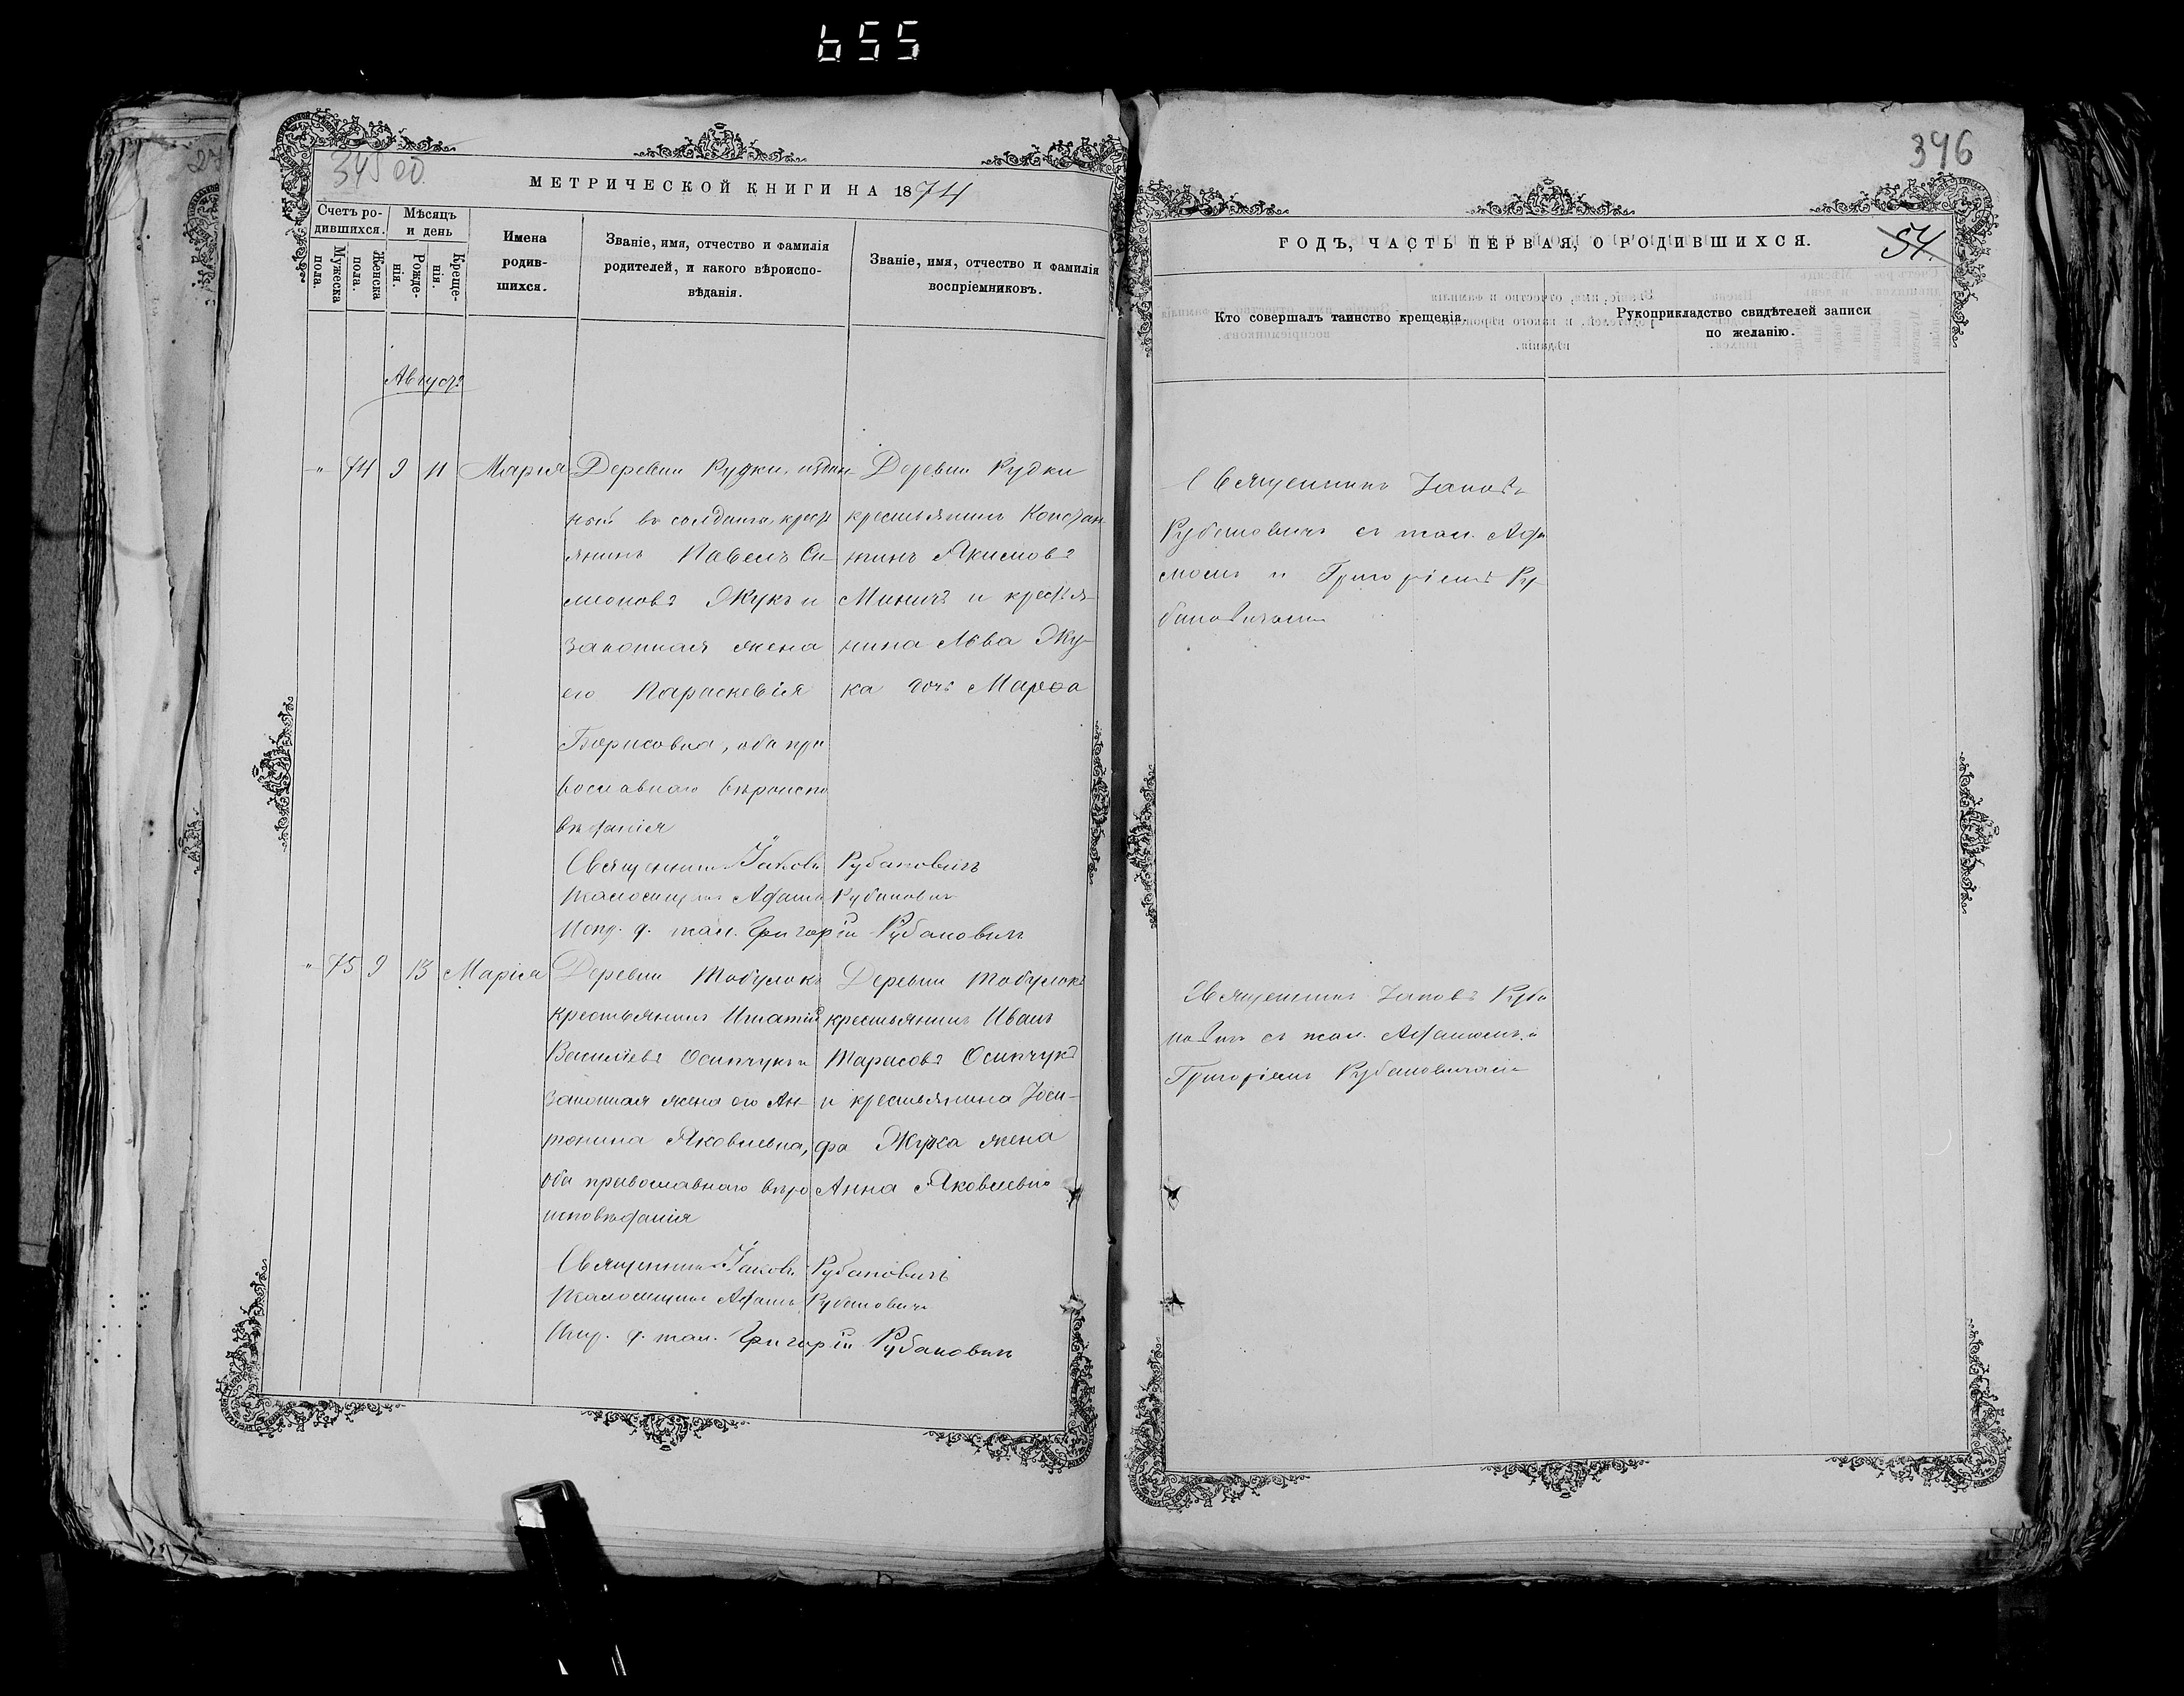 655
346
МЕТРИЧЕСКОЙ КНИГИ НА 1874
Счетъ ро-
дившихся.
Мужеска
пола.
Женска
пола.
Мѣсяцъ
и день
Рожде-
нія.
Креще-
нія.
Имена
родив-
шихся.
Званіе, имя, отчество и фамилія
родителей, и какого вѣроиспо-
вѣданія.
Званіе, имя, отчество и фамилія
воспріемниковъ.
Августъ
" 74 9 11 Марія
Деревни Рудки
ный въ солдаты крестья
янинъ Павелъ Си-
меоновъ Жукъ и
законная жена
его Параскевія
Борисовна, оба пра
вославнаго вѣроиспо
вѣданія
Деревни Рудки
крестьянинъ Констан
тинъ Якимовъ
Миничъ и крестья-
нина Льва Жу-
ка дочь Марѳа
Священникъ Іаковъ Рубановичъ
Псаломщикъ Рубановичъ
Испр. д. псал. Григорій Рубановичъ
" 75 9 13 Марія
Деревни Тобулокъ
крестьянинъ Игнатій
Василіевъ Осипчукъ и
законная жена его Ан-
тонина Яковлевна,
оба православнаго вѣро
исповѣданія
Деревни Тобулокъ
крестьянинъ Иванъ
Тарасовъ Осипчукъ
и крестьянина Іоси-
фа Жука жена
Анна Яковлевна
Священникъ Іаковъ Рубановичъ
Псаломщикъ Рубановичъ
Испр. д. псал. Григорій Рубановичъ
ГОДЪ, ЧАСТЬ ПЕРВАЯ, О РОДИВШИХСЯ.
54.
Кто совершалъ таинство крещенія.
Рукоприкладство свидѣтелей записи
по желанію.
Священникъ Іаковъ
Рубановичъ съ псал.
и Григоріемъ Ру-
бановичами
Священникъ Іаковъ Руба
новичъ съ псал. и
Григоріемъ Рубановичами